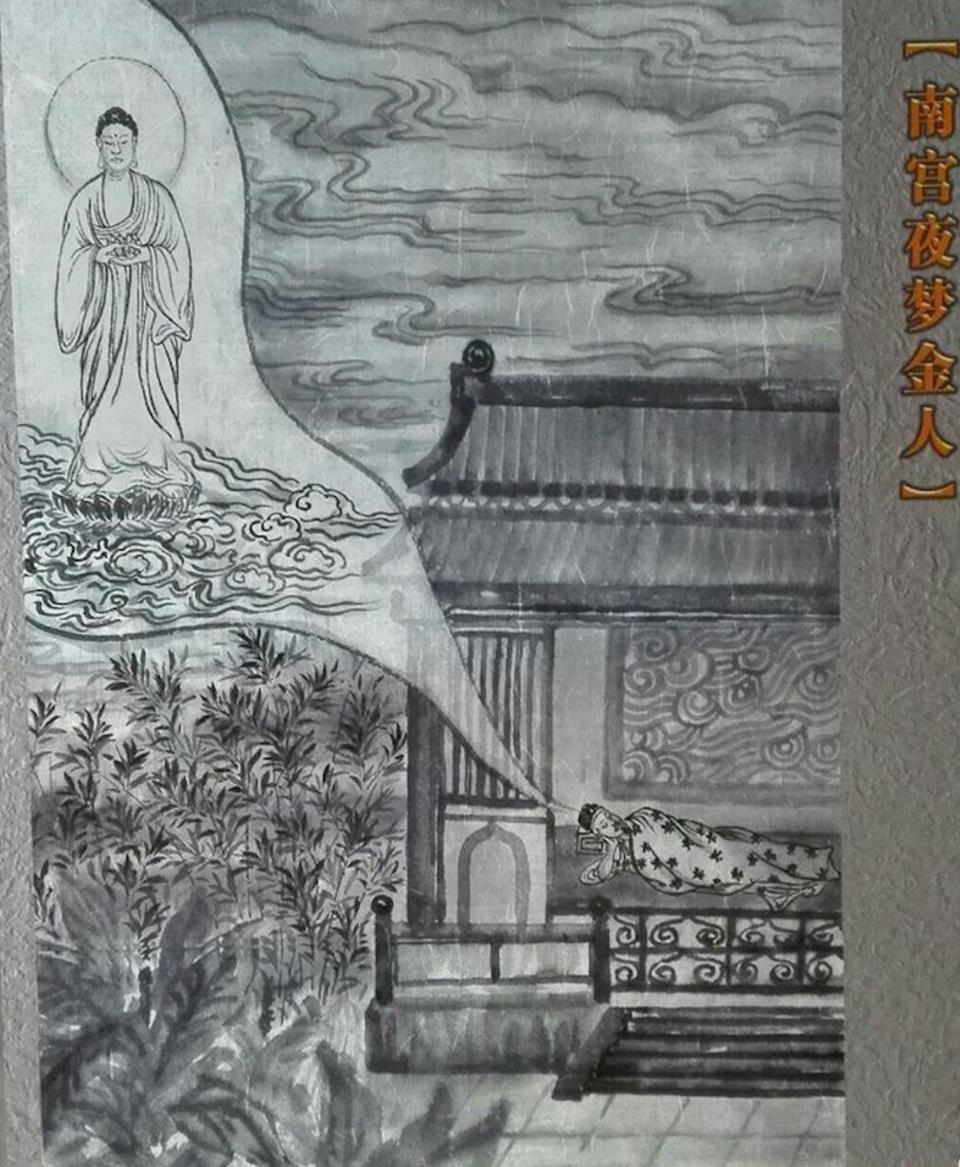 【南宫夜梦金人】